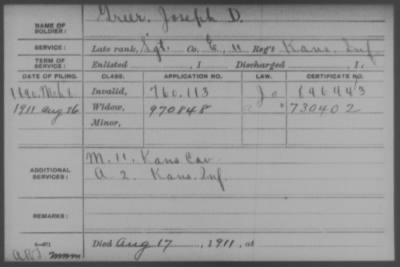 NAME OF SOLDIER: Greer, Joseph D.
SERVICE: Late rank, Sgt. Co. E, 11 Reg't Kans. Inf
TERM OF SERVICE: Enlisted , 1 Discharged , 1
DATE OF FILING. CLASS. APPLICATION NO. LAW. CERTIFICATE NO.
1890 Invalid, 760.113
1911 Aug 26 Widow, 970848 730402
Minor,
ADDITIONAL SERVICES: M. 11. Kans Cav
A 2. Kans. Inf.
REMARKS:
Died Aug 17, 1911, at